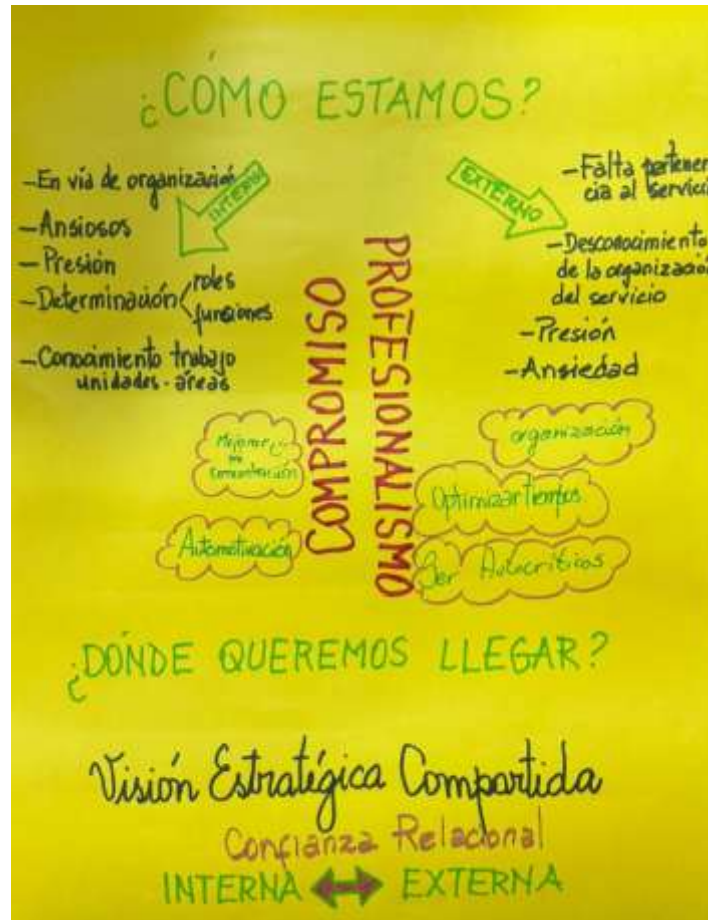 ¿CÓMO ESTAMOS?
INTERNO
-En vía de organización
-Ansiosos
-Presión
-Determinación
roles
funciones
-Conocimiento trabajo
unidades-áreas
EXTERNO
-Falta pertenen
cia al servici
-Desconocimiento
de la organización
del servicio
-Presión
-Ansiedad
COMPROMISO
PROFESIONALISMO
Mejorar
comunicación
Automotivación
organización
Optimizar tiempos
Ser Autocríticos
¿DÓNDE QUEREMOS LLEGAR?
Visión Estratégica Compartida
Confianza Relacional
INTERNA EXTERNA